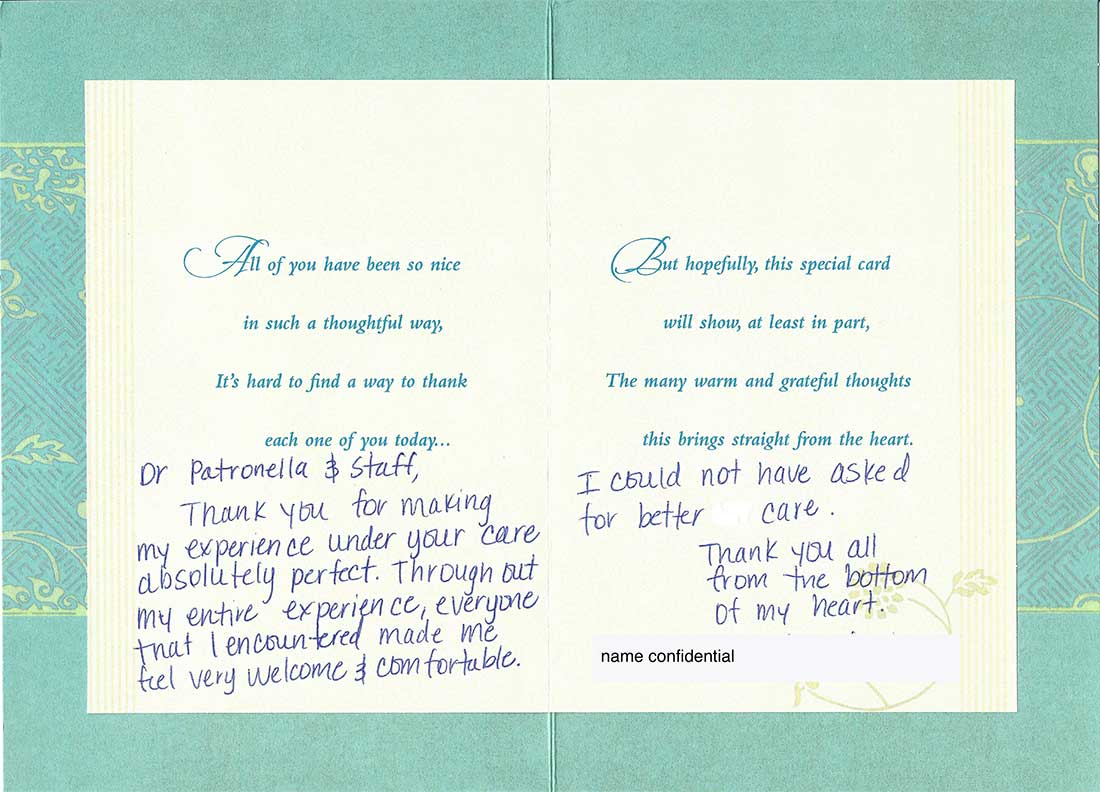 All of you have been so nice
in such a thoughtful way,
It's hard to find a way to thank
each one of you today...
Dr Patronella & Staff,
Thank you for making
my experience under your care
absolutely perfect. Through out
my entire experience, everyone
that I encountered made me
feel very welcome & comfortable.
But hopefully, this special card
will show, at least in part,
The many warm and grateful thoughts
this brings straight from the heart.
I could not have asked
for better care.
Thank you all
from the bottom
of my heart.
name confidential